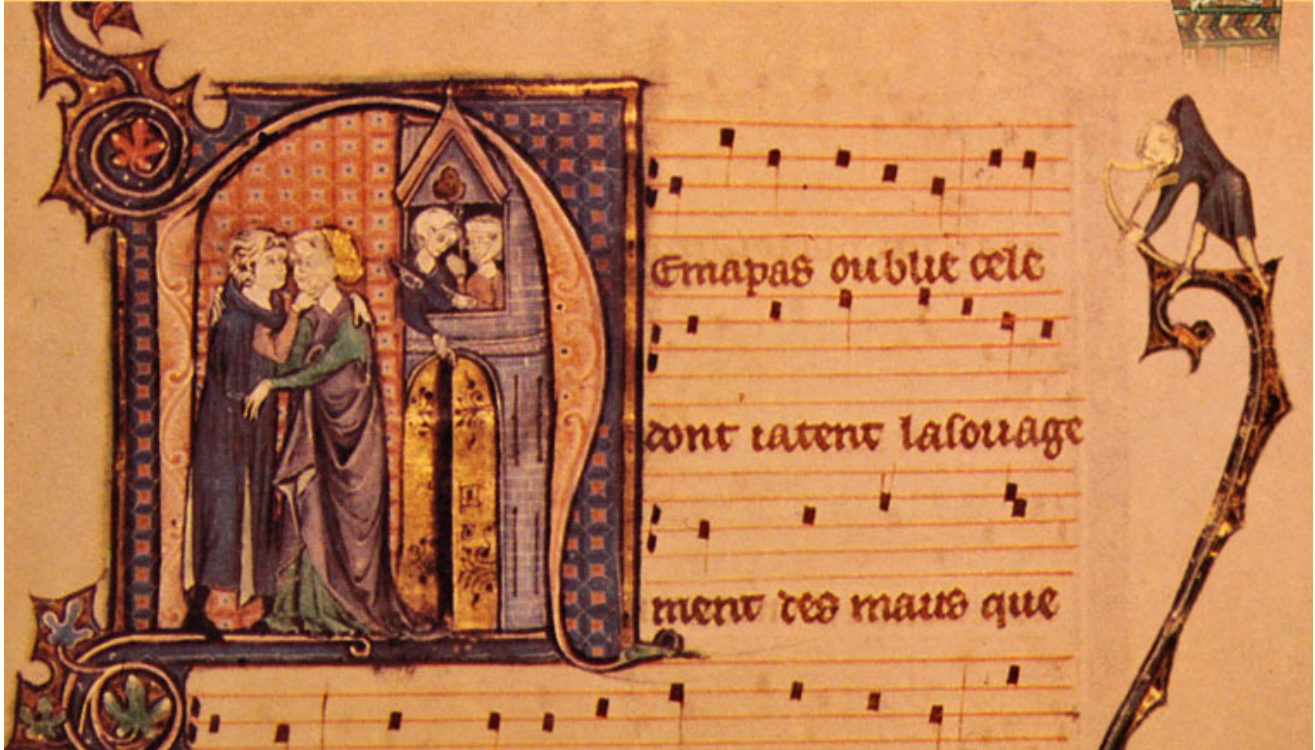 N
Emapas oublie cele
dont iatent lasouage
ment des maus que